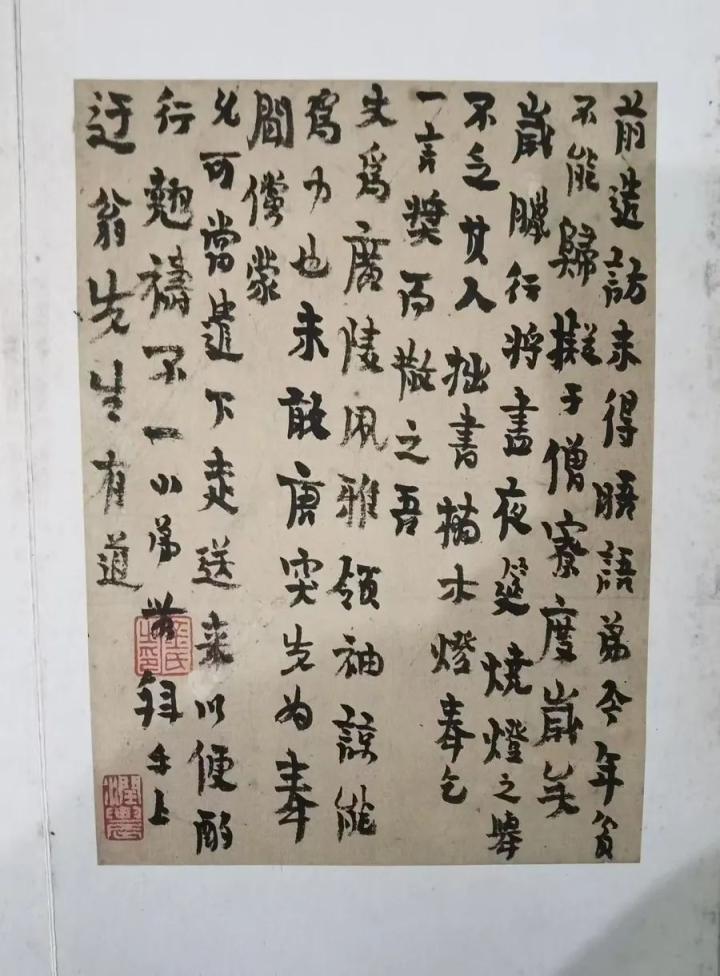 前造訪未得晤語弟今年貧
不能歸擬于僧寮度歲矣
歲臘行將盡夜燒燈之舉
不乏其人拙書燈奉乞
一言獎而散之吾
丈爲廣陵風雅領袖諒能
爲力也未敢唐突先为奉
聞儻蒙
允可當遣下走送來以便酌
行禱不一小弟拜手上
迂翁先生有道